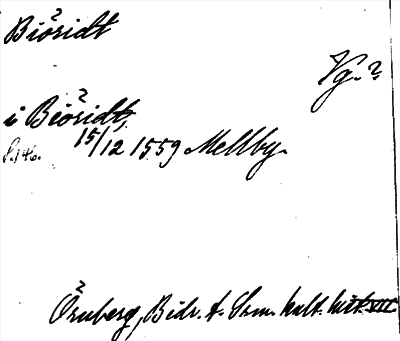 Biöridt
Vg. ?
i Biöridt,
S. 146. 15/12 1559 Mellby.
Örnberg, Bidr. t. Srm. kult. hist. VII